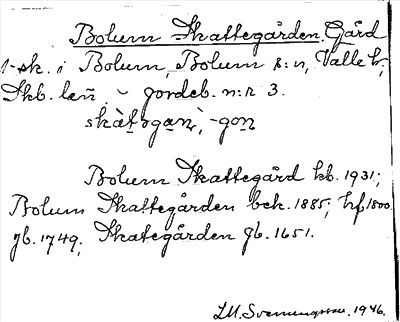 Bolum Skattegården Gård
1 sk. i Bolum, Bolum s:n, Valle hd,
Skb. län. ~ jordeb. n:r 3.
skàtogaṉ, -goṉ
Bolum Skattegård kb. 1931;
Bolum Skattegården bek. 1885; hf 1800
jb. 1749; Skategården jb. 1651.
1946.